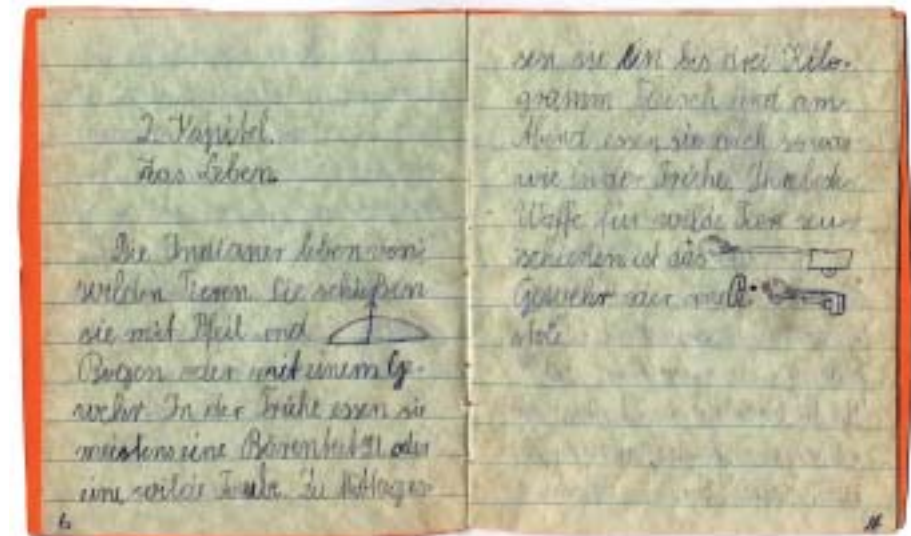 2. Kapitel.
Das Leben.
Die Indianer leben von
wilden Tieren. Sie schießen
sie mit Pfeil und
Bogen oder mit einem Ge-
wehr. In der Frühe essen sie
meistens eine Bärentatze oder
eine wilde Zu Mittages
6
sen sie ein bis drei Kilo-
gramm Fleisch und am
Abend essen sie auch sowas
wie in der Frühe.
Waffe für wilde Tiere zu
schießen ist das
Gewehr oder